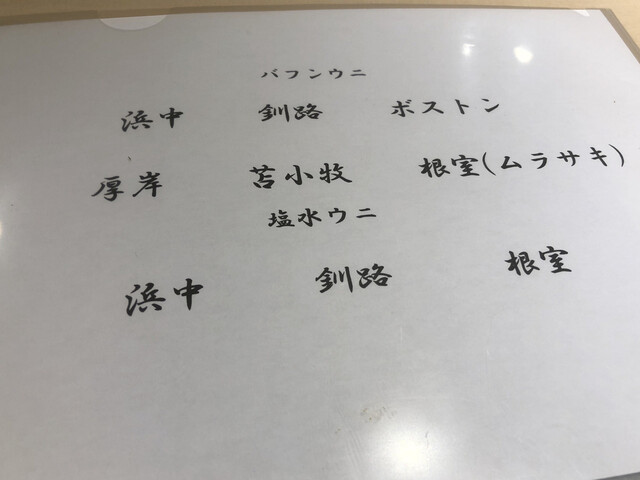 バフンウニ
浜中 釧路 ボストン
厚岸 苫小牧 根室(ムラサキ)
塩水ウニ
浜中 釧路 根室